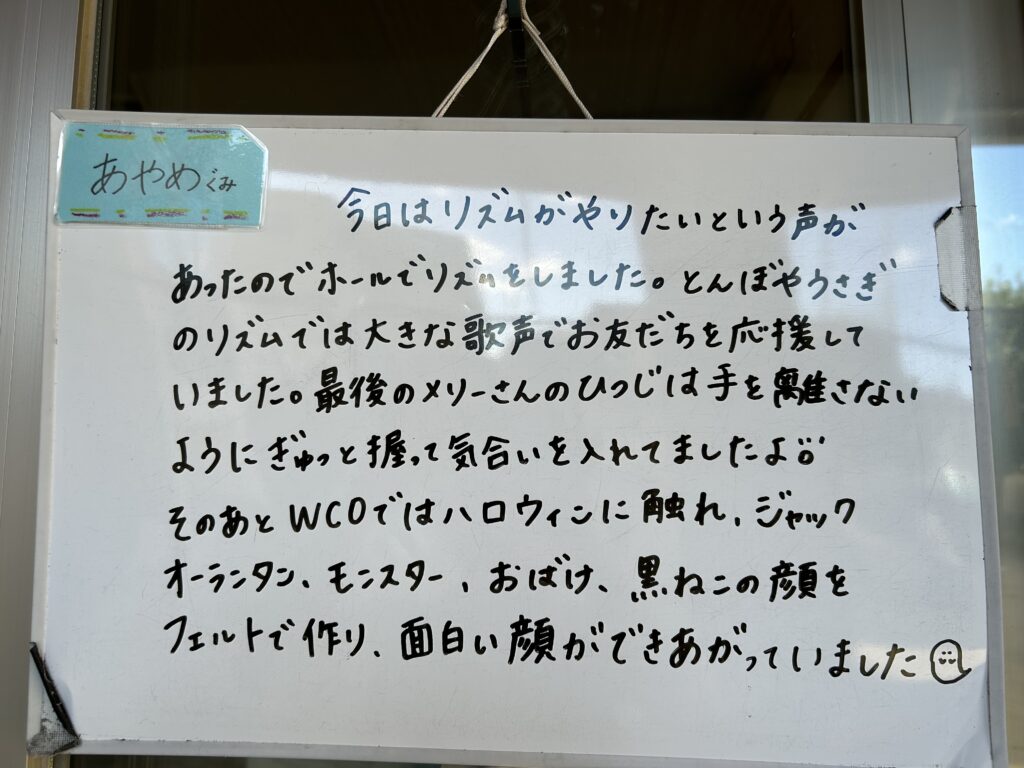 あやめぐみ
今日はリズムがやりたいという声が
あったのでホールでリズムをしました。とんぼやうさぎ
のリズムでは大きな歌声でお友だちを応援して
いました。最後のメリーさんのひつじは手を離さない
ようにぎゅっと握って気合いを入れてましたよ!!
そのあとWCOではハロウィンに触れ、ジャック
オーランタン、モンスター、おばけ、黒ねこの顔を
フェルトで作り、面白い顔ができあがっていました